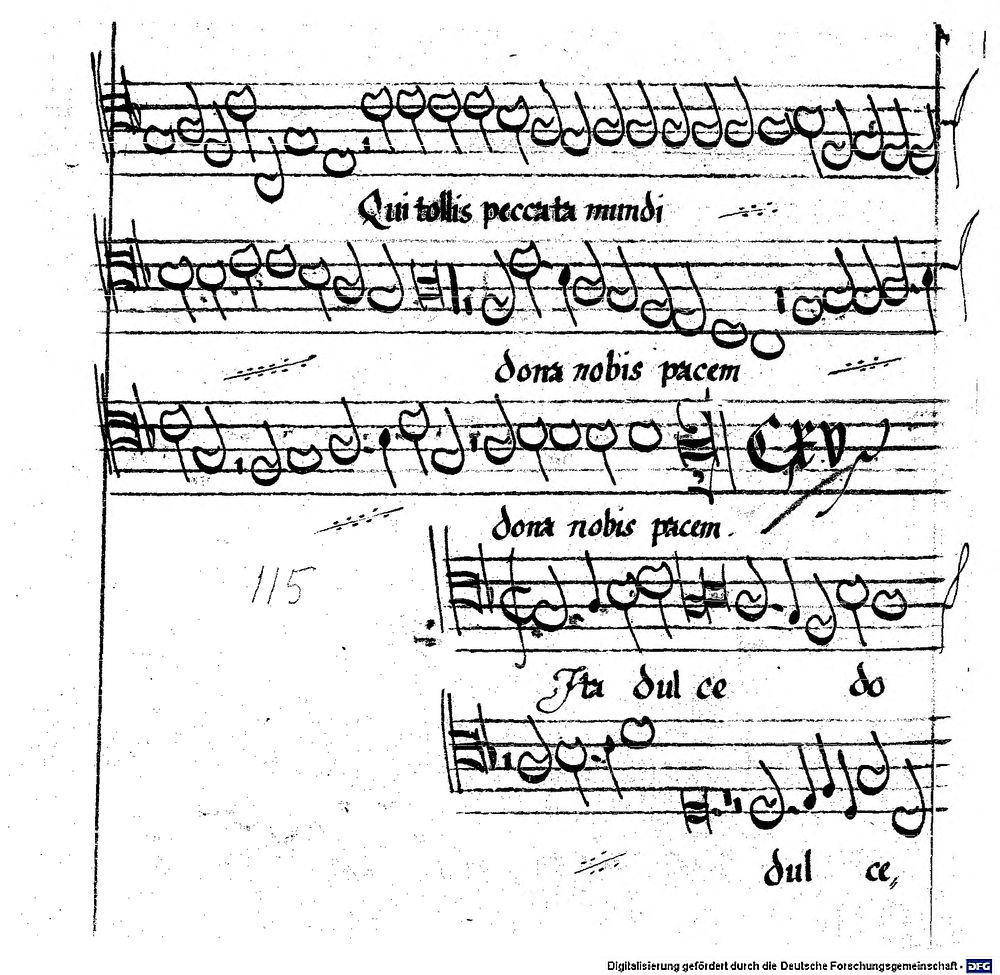 Qui tollis peccata mundi
dona nobis pacem
CXV
dona nobis pacem.
115
Ita dul ce do
dul ce,,
Digitalisierung gefördert durch die Deutsche Forschungsgemeinschaft - DFG